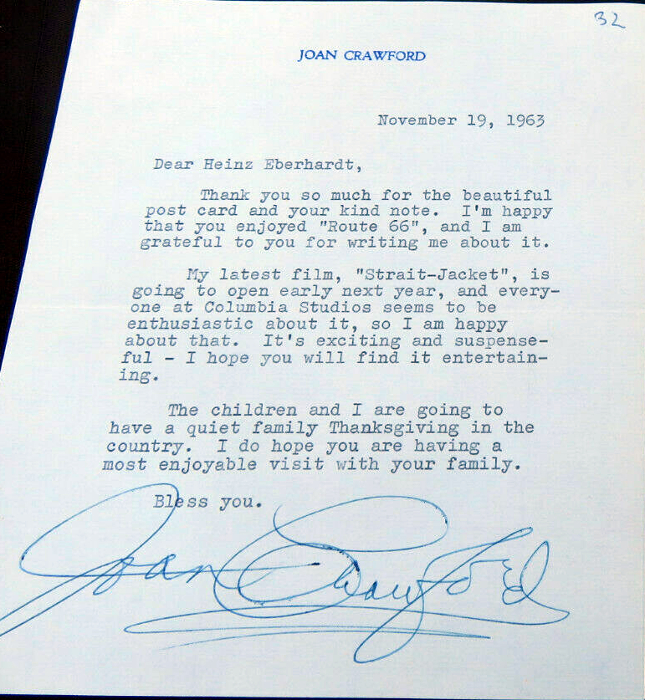 32
JOAN CRAWFORD
November 19, 1963
Dear Heinz Eberhardt,
Thank you so much for the beautiful
post card and your kind note. I'm happy
that you enjoyed "Route 66", and I am
grateful to you for writing me about it.
My latest film, "Strait-Jacket", is
going to open early next year, and every-
one at Columbia Studios seems to be
enthusiastic about it, so I am happy
about that. It's exciting and suspense-
ful - I hope you will find it entertain-
ing.
The children and I are going to
have a quiet family Thanksgiving in the
country. I do hope you are having a
most enjoyable visit with your family.
Bless you.
Joan Crawford